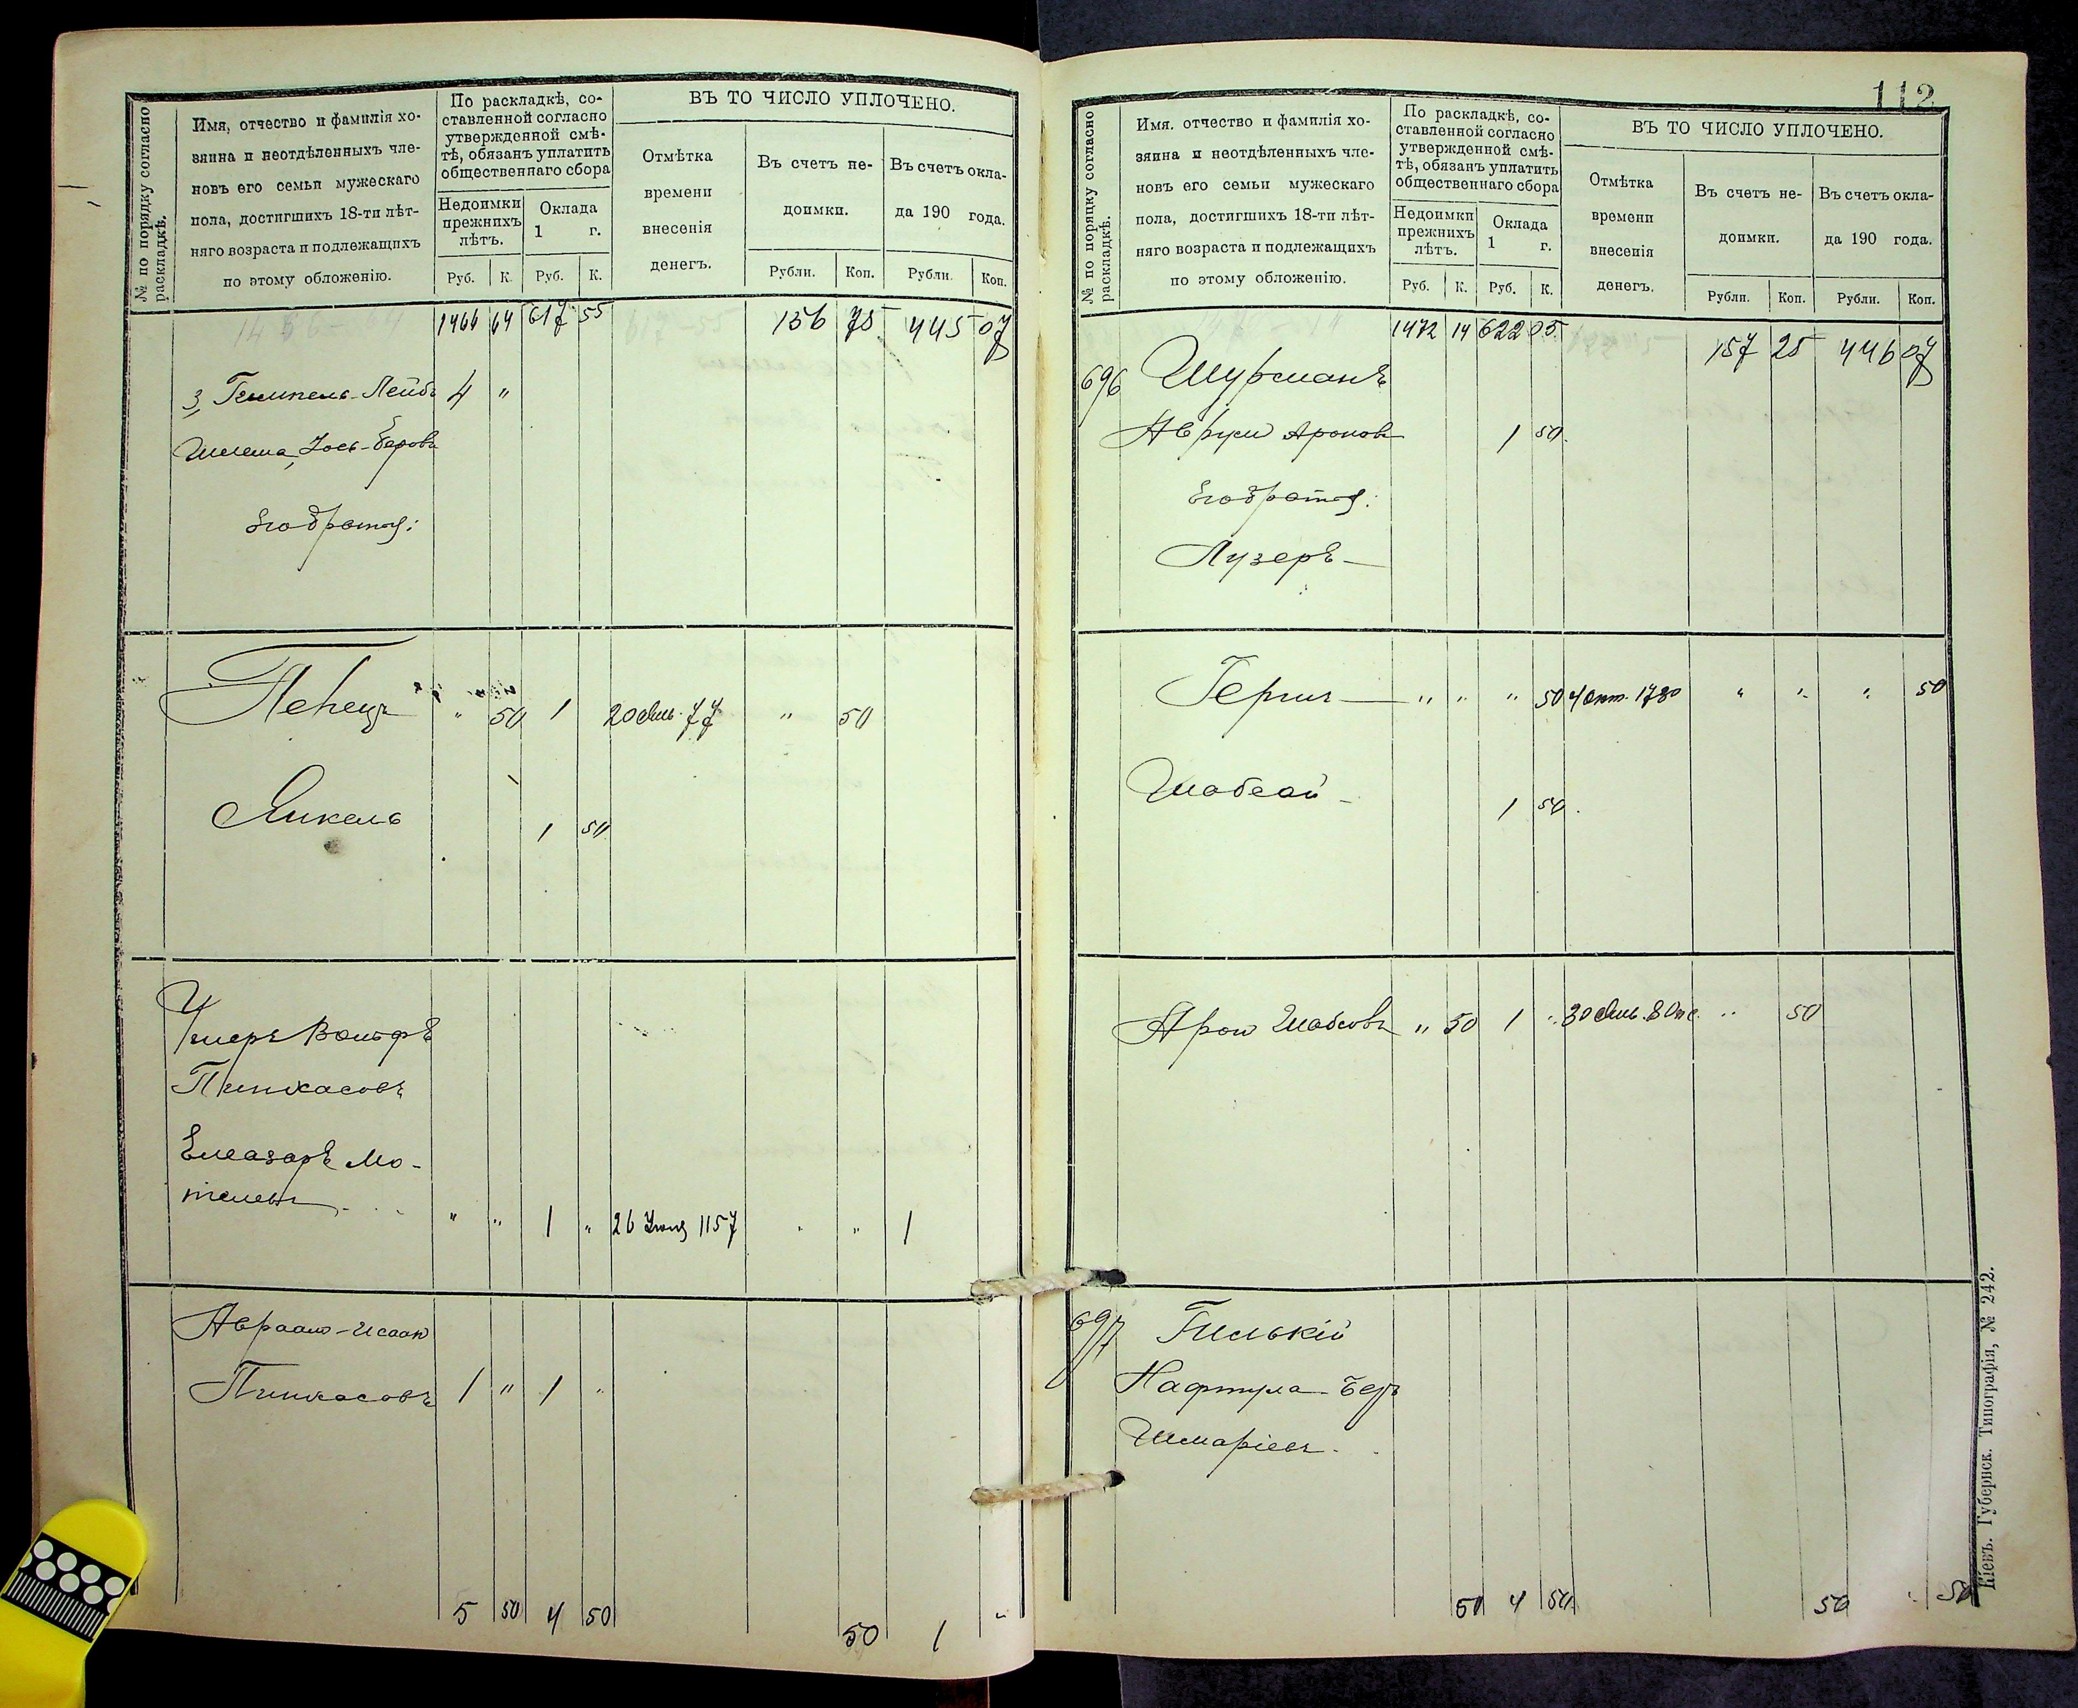 № по порядку согласно раскладкѣ.
Имя, отчество и фамилія хо-
зяина и неотдѣленныхъ чле-
новъ его семьи мужескаго
пола, достигшихъ 18-ти лѣт-
няго возраста и подлежащихъ
по этому обложенію.
По раскладкѣ, со-
ставленной согласно
утвержденной смѣ-
тѣ, обязанъ уплатить
общественнаго сбора
Недоимки
прежнихъ
лѣтъ.
Оклада
1 г.
Руб. К. Руб. К.
ВЪ ТО ЧИСЛО УПЛОЧЕНО.
Отмѣтка
времени
внесенія
денегъ.
Въ счетъ не-
доимки.
Въ счетъ окла-
да 190 года.
Рубли. Коп. Рубли. Коп.
1466 64 617 55 156 75 445 07
3, Гемпель-Лейбъ 4 "
Шлема, Іось-Беровъ
Его братья:
" 50 1 20 Янв. 77 " 50
Янкель 1 50
Умеръ Вольфъ
Пинхасовъ
Елеазаръ Мо-
телевъ " " 1 " 26 Іюня 1157 " " 1
Авраам-Исаак
Пинхасовъ 1 " 1 "
5 50 4 50 50 1 "
112
№ по порядку согласно раскладкѣ.
Имя. отчество и фамилія хо-
зяина и неотдѣленныхъ чле-
новъ его семьи мужескаго
пола, достигшихъ 18-ти лѣт-
няго возраста и подлежащихъ
по этому обложенію.
По раскладкѣ, со-
ставленной согласно
утвержденной смѣ-
тѣ, обязанъ уплатить
общественнаго сбора
Недоимки
прежнихъ
лѣтъ.
Оклада
1 г.
Руб. К. Руб. К.
ВЪ ТО ЧИСЛО УПЛОЧЕНО.
Отмѣтка
времени
внесенія
денегъ.
Въ счетъ не-
доимки.
Въ счетъ окла-
да 190 года.
Рубли. Коп. Рубли. Коп.
1472 14 622 05 157 25 446 07
696 Шурманъ
Аврум Аронов 1 50
Его братья:
Лузеръ
Герш " " " 50 4 Окт. 1780 " " " 50
Шабсай 1 50
Арон Шабсовъ " 50 1 " 30 Янв. 80 " 50
697 Гилькій
Нафтула-Беръ
Шмаріевъ
50 4 50 50 50
Кіевъ. Губернск. Типографія, № 242.